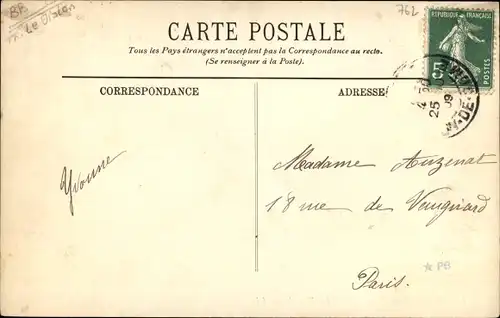 BB
762
CARTE POSTALE
Tous les Pays étrangers n'acceptent pas la Correspondance au recto.
(Se renseigner à la Poste).
REPUBLIQUE FRANÇAISE
5
POSTES
CORRESPONDANCE
ADRESSE
25
09
Yvonne
Madame Auzenat
18 rue de Vaugirard
Paris.
PB